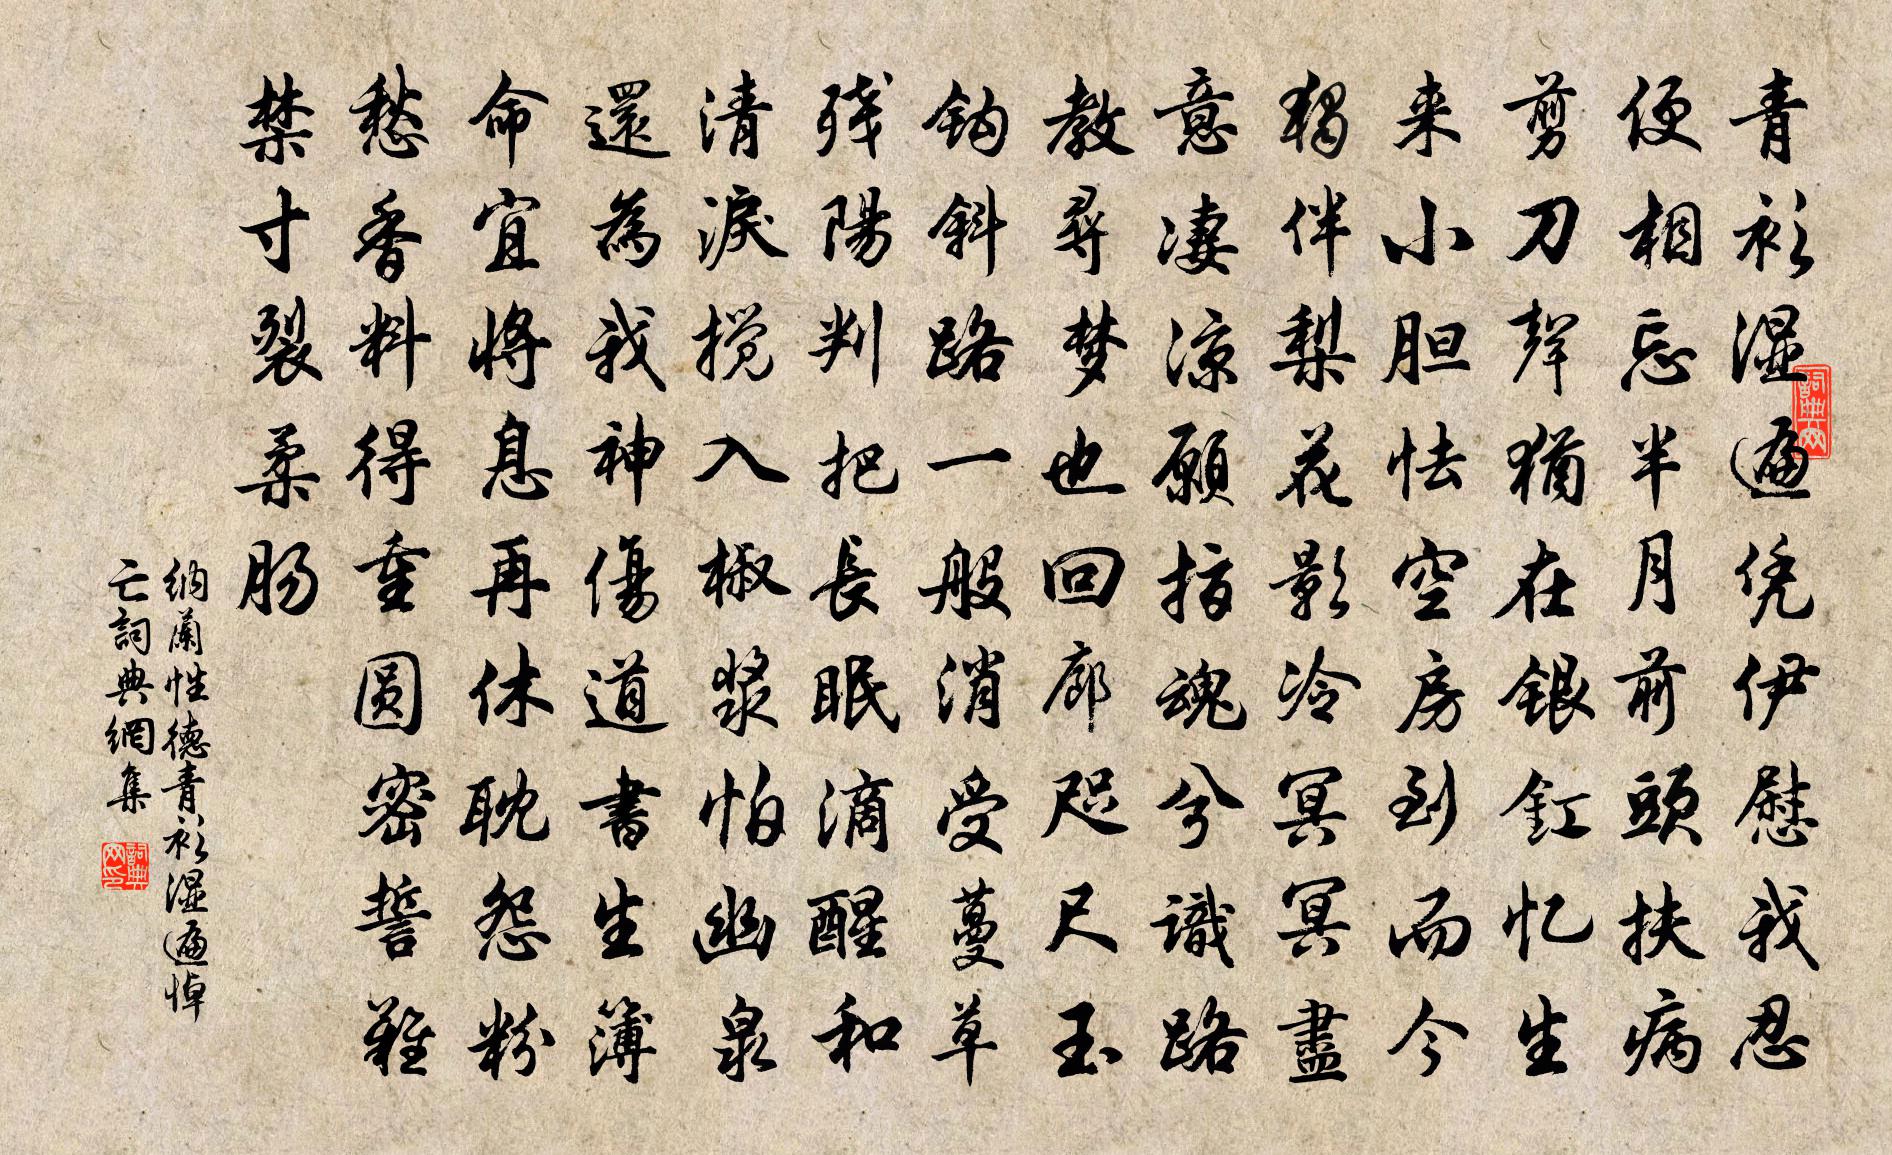 青衫湿遍凭伊慰我忍
便相忘半月前頭扶病
剪刀聲猶在銀釭忆生
来小胆怯空房到而今
獨伴梨花影冷冥冥盡
意凄涼願指魂兮識路
教尋梦也回廊咫尺玉
鈎斜路一般消受蔓草
残陽判把長眠滴醒和
清淚搅入椒漿怕幽泉
還為我神傷道書生簿
命宜將息再休耽怨粉
愁香料得重圆密誓難
禁寸裂柔肠
納蘭性德青衫湿遍悼
亡詞典網集
詞典网
詞典网印